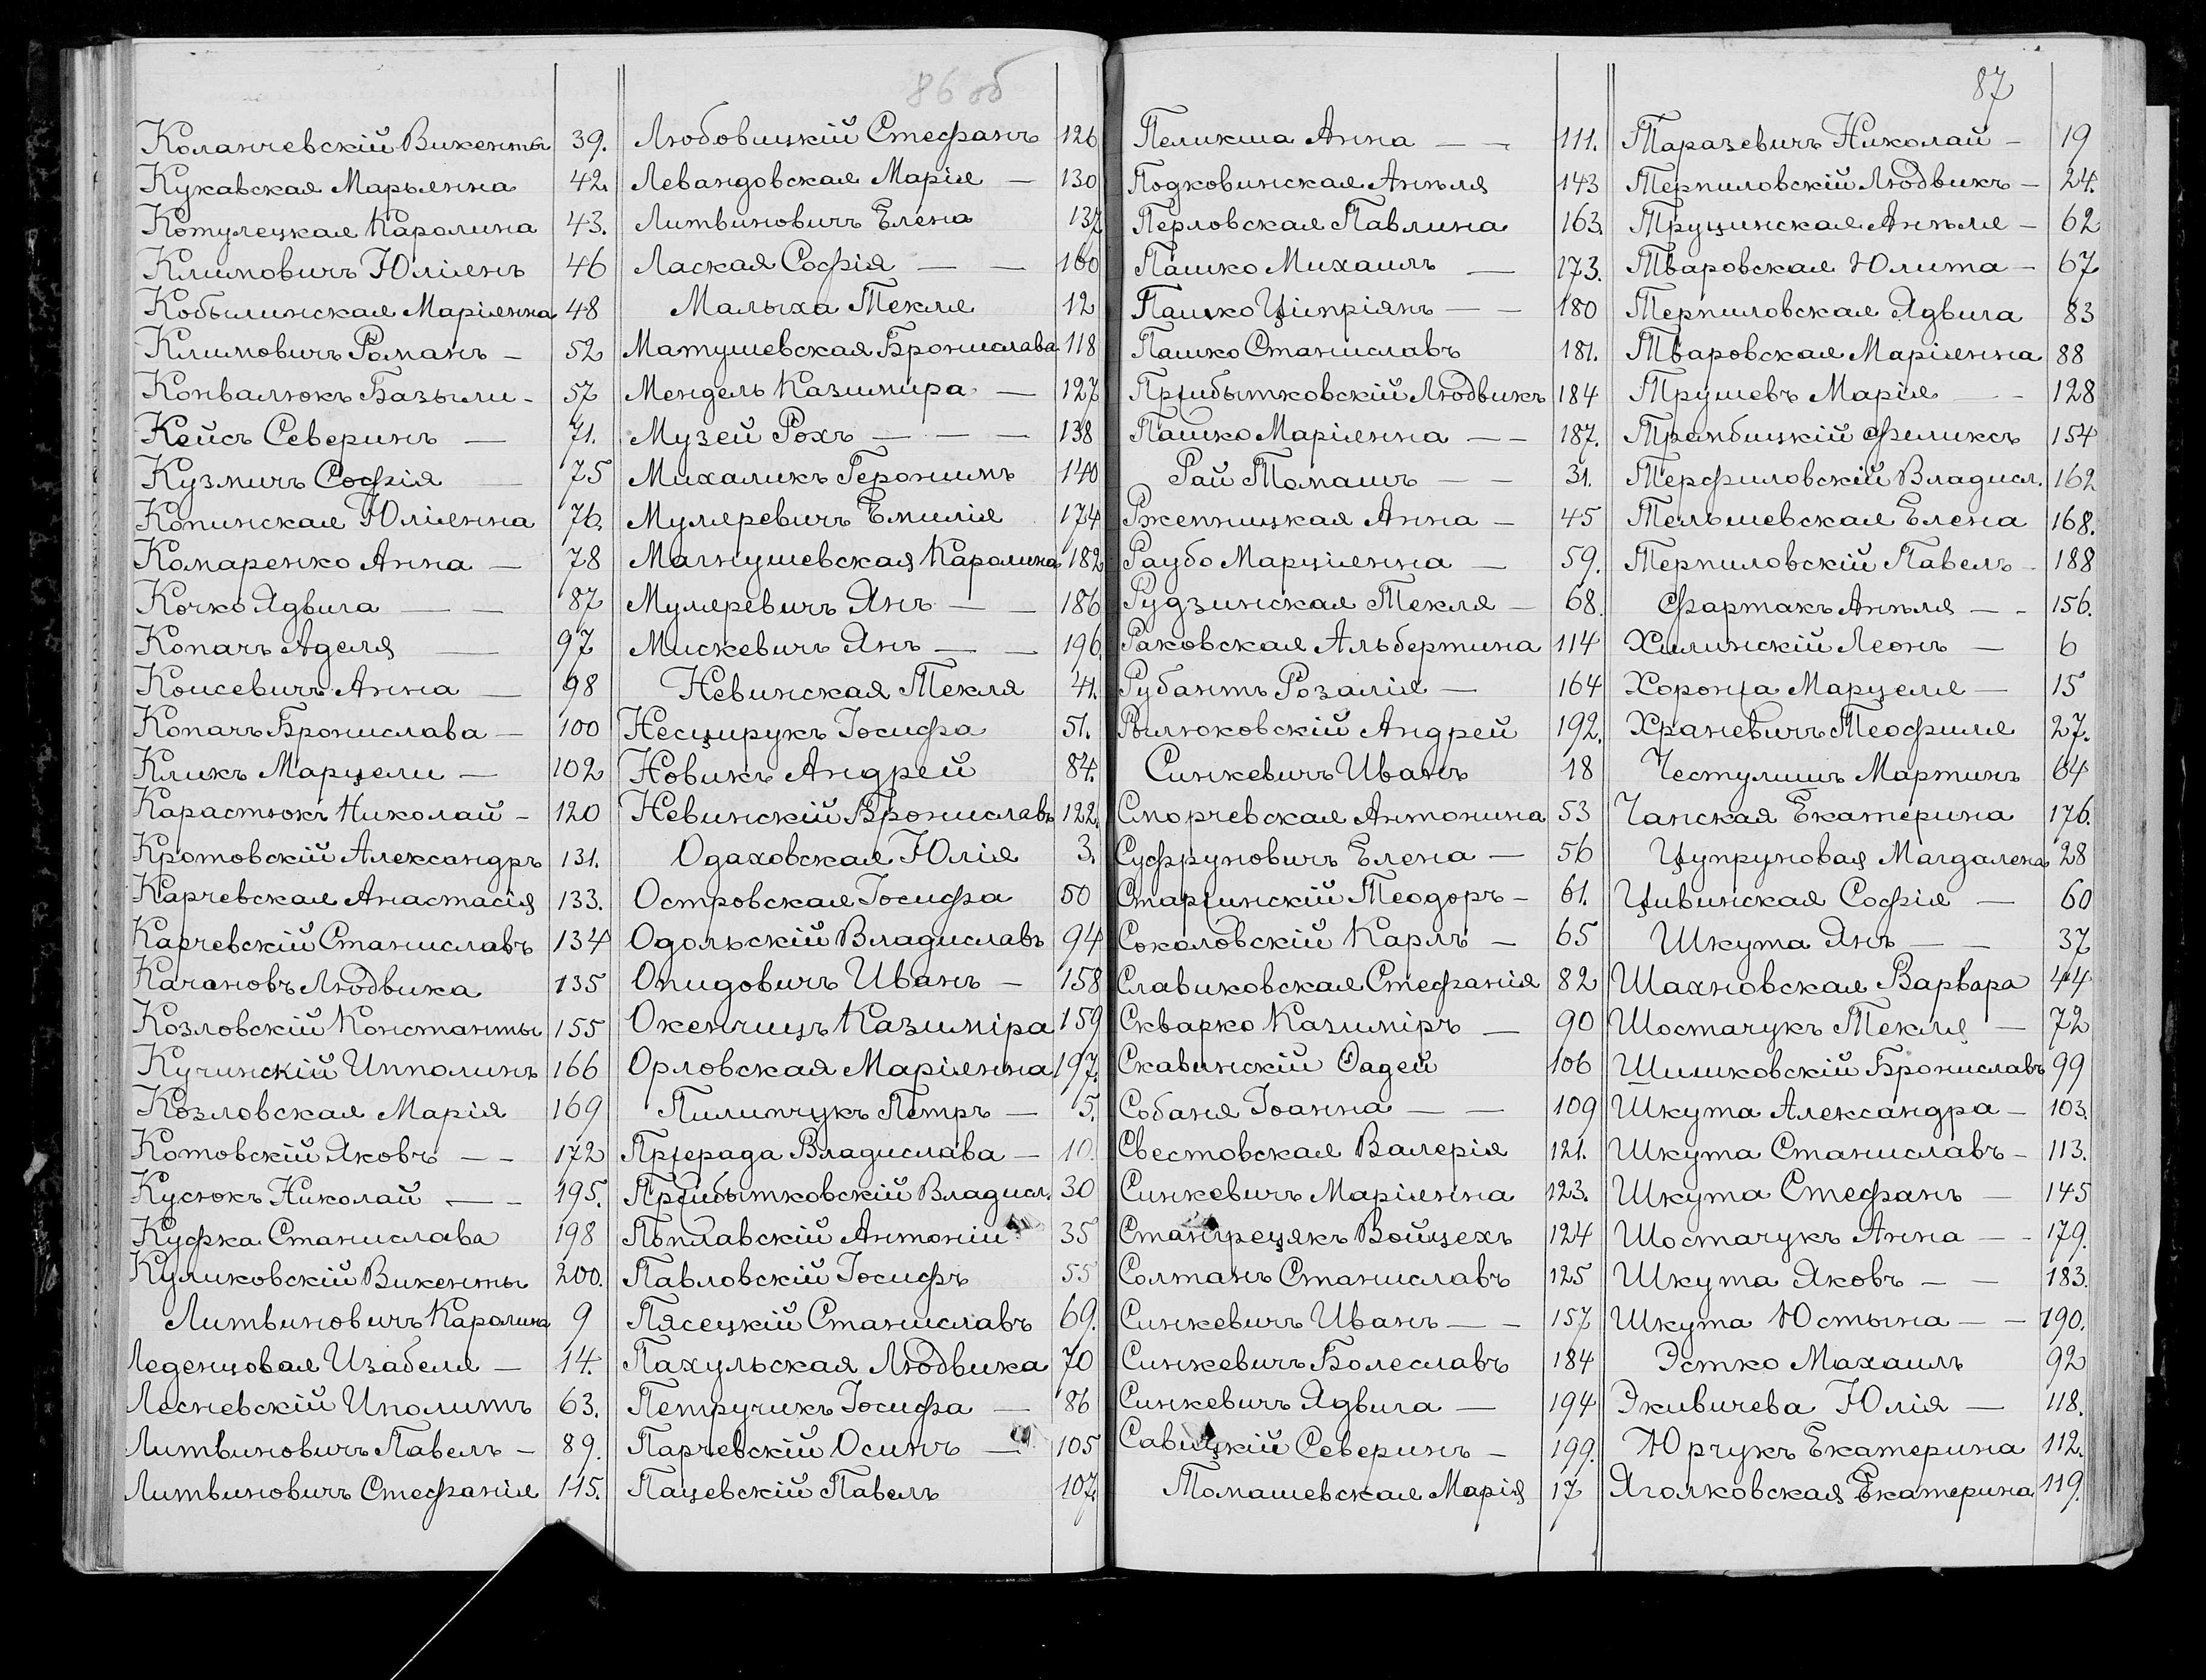 86 об
Коланчевскій Викенты 39.
Кукавская Марьянна 42.
Котулецкая Каролина 43.
Климовичъ Юліянъ 46
Кобылинская Маріянна 48
Климовичъ Романъ - 52
Конвалюкъ Базыли - 57
Кейсъ Северинъ — 71.
Кузмичъ Софія — 75
Копинская Юліянна 76.
Комаренко Анна — 78
Кочко Ядвига — — 87
Копачъ Аделя — 97
Коисевичъ Анна — 98
Копачъ Бронислава — 100
Кликъ Марцели — 102
Карастюкъ Николай - 120
Кротовскій Александръ 131.
Карчевская Анастасія 133.
Карчевскій Станиславъ 134
Качановъ Людвика 135
Козловскій Константы 155
Кучинскій Ипполинъ 166
Козловская Марія 169
Котовскій Яковъ — - 172
Кусюкъ Николай — - 195.
Куфка Станислава 198
Куликовскій Викенты 200.
Литвиновичъ Каролина 9
Леденцовая Изабеля — 14.
Лесневскій Иполитъ 63.
Литвиновичъ Павелъ - 89.
Литвиновичъ Стефанія 115.
Любовицкій Стефанъ 126
Левандовская Марія — 130
Литвиновичъ Елена 137
Лаская Софія — — 160
Малыха Текля 12
Матушевская Бронислава 118
Мендель Казимира — 127
Музей Рохъ — — — 138
Михаликъ Геронимъ 140
Муляревичъ Емилія 174
Магнушевская Каролина 182
Муляревичъ Янъ — — 186
Мискевичъ Янъ — — 196.
Невинская Текля 41.
Несцирукъ Іосифа 51.
Новикъ Андрей 84.
Невинскій Брониславъ 122.
Одаховская Юлія 3.
Островская Іосифа 50
Одольскій Владиславъ 94
Опидовичъ Иванъ — 158
Окенчицъ Казиміра 159
Орловская Маріянна 197.
Пилипчукъ Петръ — 5.
Пржерада Владислава — 10.
Пржибытковскій Владисл. 30
Поплавскій Антоній 35
Павловскій Іосифъ 55
Пясецкій Станиславъ 69.
Пахульская Людвика 70
Петручикъ Іосифа — 86
Парчевскій Осипъ — 105
Пацевскій Павелъ 107.
87
Пеликша Анна — — 111.
Подковинская Анѣля 143
Перловская Павлина 163.
Пашко Михаилъ — 173.
Пашко Ципріянъ — — 180
Пашко Станиславъ 181.
Пржибытковскій Людвикъ 184
Пашко Маріянна — — 187.
Рай Томашъ — — 31.
Ржепницкая Анна — 45
Раубо Марціянна — 59.
Рудзинская Текля — 68.
Раковская Альбертина 114
Рубантъ Розалія — 164
Рылюковскій Андрей 192.
Синкевичъ Иванъ 18
Сморчевская Антонина 53
Суфруновичъ Елена — 56
Старжинскій Теодоръ - 61.
Соколовскій Карлъ — 65
Славиковская Стефанія 82
Скварко Казиміръ — 90
Скавинскій Фадей 106
Собаня Іоанна — — 109
Свестовская Валерія 121.
Синкевичъ Маріянна 123.
Стангрецякъ Войцехъ 124
Солтанъ Станиславъ 125
Синкевичъ Иванъ — — 157
Синкевичъ Болеславъ 184
Синкевичъ Ядвига — 194
Савицкій Северинъ — 199.
Томашевская Марія 17
Таразевичъ Николай - 19
Терпиловскій Людвикъ - 24.
Трущинская Анѣля - 62
Тваровская Юлита - 67
Терпиловская Ядвига 83
Тваровская Маріянна 88
Трушевъ Марія — - 128
Трамбицкій Феликсъ 154
Терфиловскій Владисл. 162
Тельшевская Елена 168.
Терпиловскій Павелъ - 188
Фартакъ Анѣля — - 156.
Хилинскій Леонъ — 6
Хоронжа Марцеля — 15
Храневичъ Теофиля 27.
Честулишъ Мартинъ 64
Чапская Екатерина 176.
Цупруновая Магдалена 28
Цивинская Софія — 60
Шкута Янъ — — 37
Шахновская Варвара 44
Шостачукъ Текля — 72
Шишковскій Брониславъ 99
Шкута Александра — 103.
Шкута Станиславъ - 113.
Шкута Стефанъ — 145
Шостачукъ Анна — - 179.
Шкута Яковъ — — 183.
Шкута Юстына — — 190.
Эстко Махаилъ 92
Экивичева Юлія — 118.
Юрчукъ Екатерина 112.
Яголковская Екатерина 119.